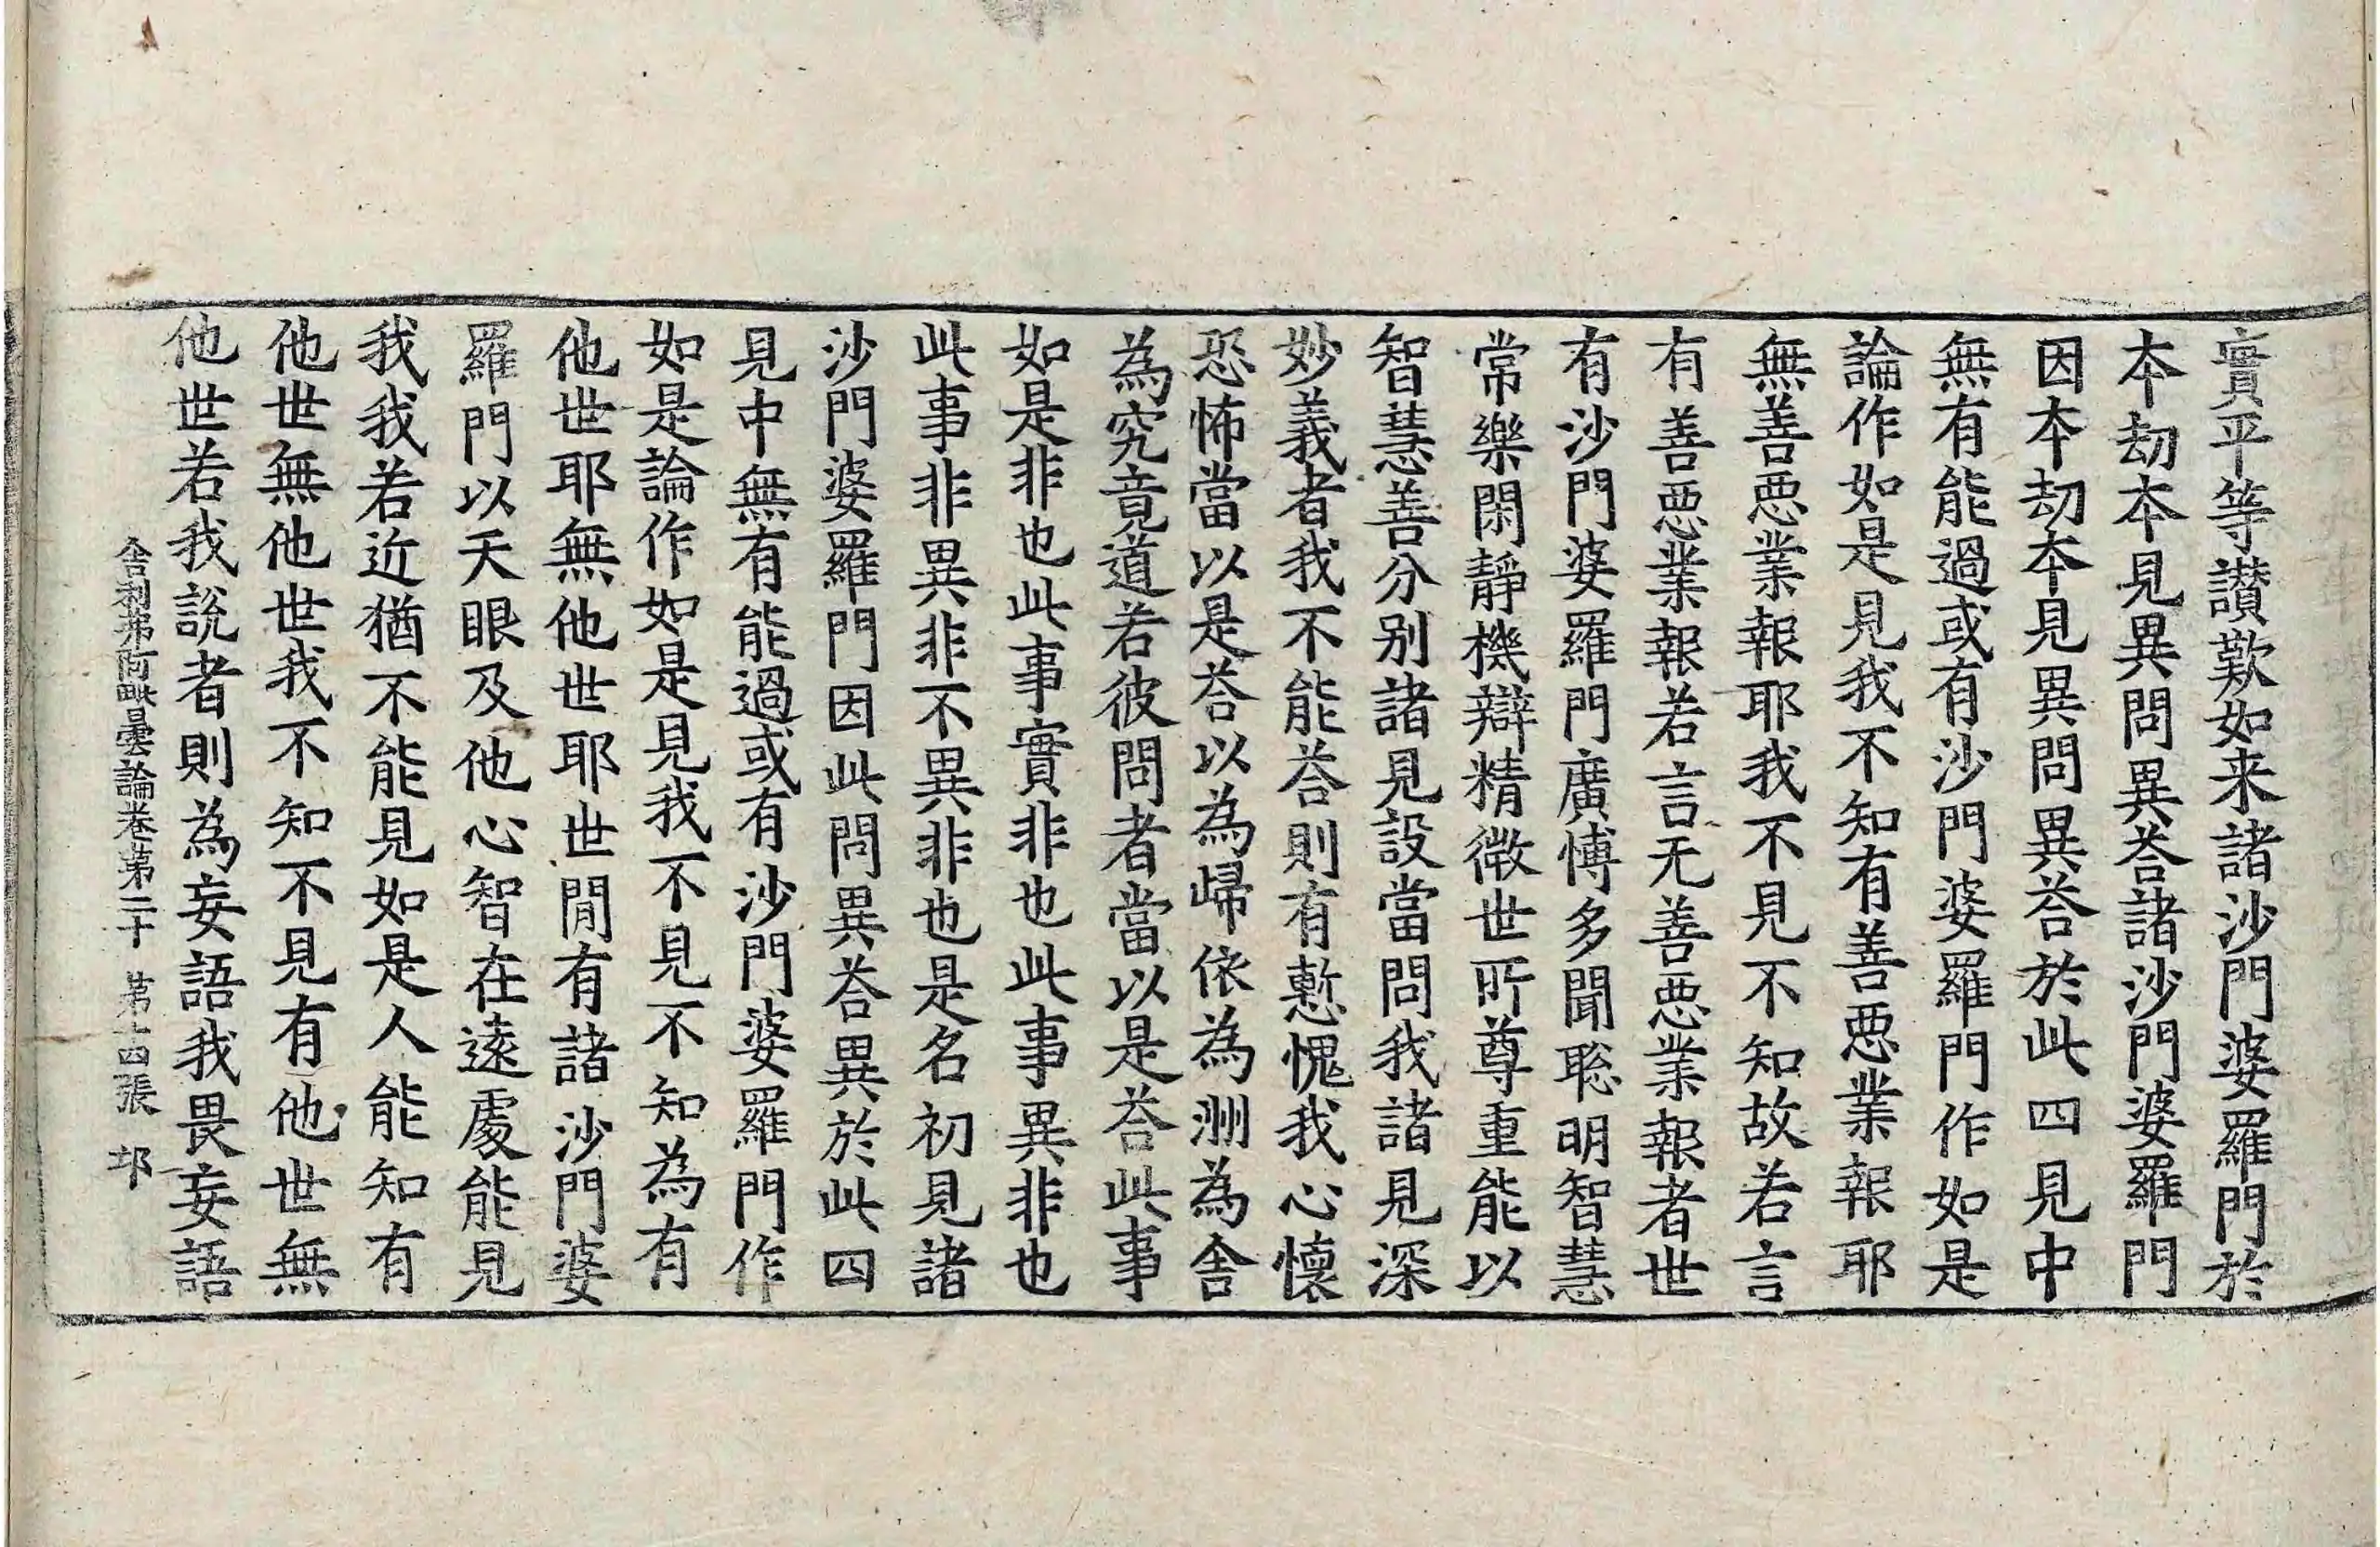 實平等讃歎如来諸沙門婆羅門於
本劫本見異問異荅諸沙門婆羅門
因本劫本見異問異荅於此四見中
無有能過或有沙門婆羅門作如是
論作如是見我不知有善惡業報耶
無善惡業報耶我不見不知故若言
有善惡業報若言无善惡業報者世
有沙門婆羅門廣博多聞聡明智慧
常樂閑靜機辯精微世所尊重能以
智慧善分别諸見設當問我諸見深
妙義者我不能荅則有慙愧我心懷
恐怖當以是荅以為歸依為洲為舍
為究竟道若彼問者當以是荅此事
如是非也此事實非也此事異非也
此事非異非不異非也是名初見諸
沙門婆羅門因此問異荅異於此四
見中無有能過或有沙門婆羅門作
如是論作如是見我不見不知為有
他世耶無他世耶世間有諸沙門婆
羅門以天眼及他心智在遠處能見
我我若近猶不能見如是人能知有
他世無他世我不知不見有他世無
他世若我說者則為妄語我畏妄語
舍利弗阿毗曇論卷第二十 第十四張 𨚗